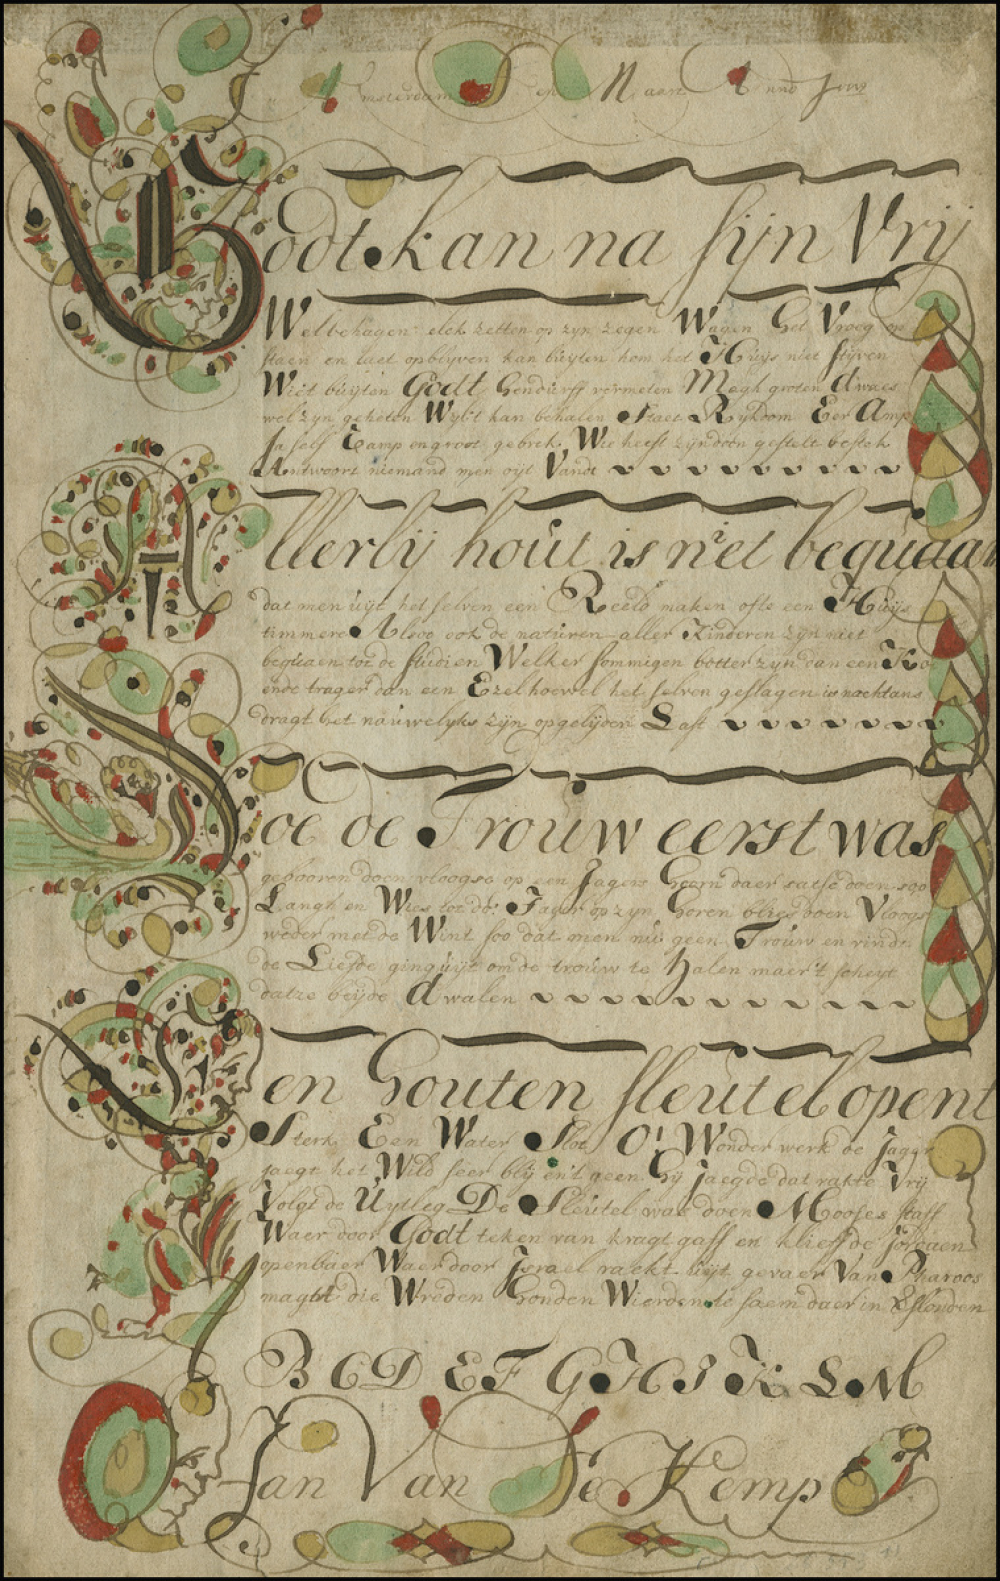 Amsterdam den Maart Anno
Godt kan na sijn Vrij
Welbehagen elck zetten op zyn zegen Wagen Het Vroeg op
staen en laet opblyven kan buyten hem het Huys niet styven
Wiet buyten Godt Hendurff vermeten Magh groten dwaes
wel zyn geheten Wybt kan behalen Staet Rykdom Eer Amp
Ja self Camp en groot gebrek Wie heeft zyn doen gestelt bestek
Antwoort niemand men uijt Vandt
Allerlij hout is niet bequaam
dat men uijt het selven een Beeld maken ofte een Huijs
timmere Alsoo ook de naturen aller Kinderen zyn niet
bequaen tot de studien Welker sommigen botter zyn dan een Ko
ende trager dan een Ezel hoewel het selven geslagen is nochtans
dragt het nauwelyks zijn opgelijden Last
Doe de Trouw eerst was
gebooren doen vloogse op een Jagers Hoorn daer satse doen soo
Langh en Wies tot de Jager op zyn Horen blies doen Vloogs
weder met de Wint soo dat men nu geen Trouw en vindt
de Liefde ging uijt om de trouw te Halen maer't scheyt
datze beijde dwalen
Een Houten sleutel opent
Sterk Een Water Slot O! Wonder werk de jager
jaegt het Wild seer blij en't geen Hij jaegde dat rakte Vrij
Volgt de Uytleg De Sleutel was doen Mooses staff
Waer door Godt teken van kragt gaff en klieff de jordaen
openbaer Waer door Israel raekt uijt gevaer Van Pharoos
magt die Wreden Honden Wierden te saem daer in
B C D E F G H I K L M
Jan Van De Kemp